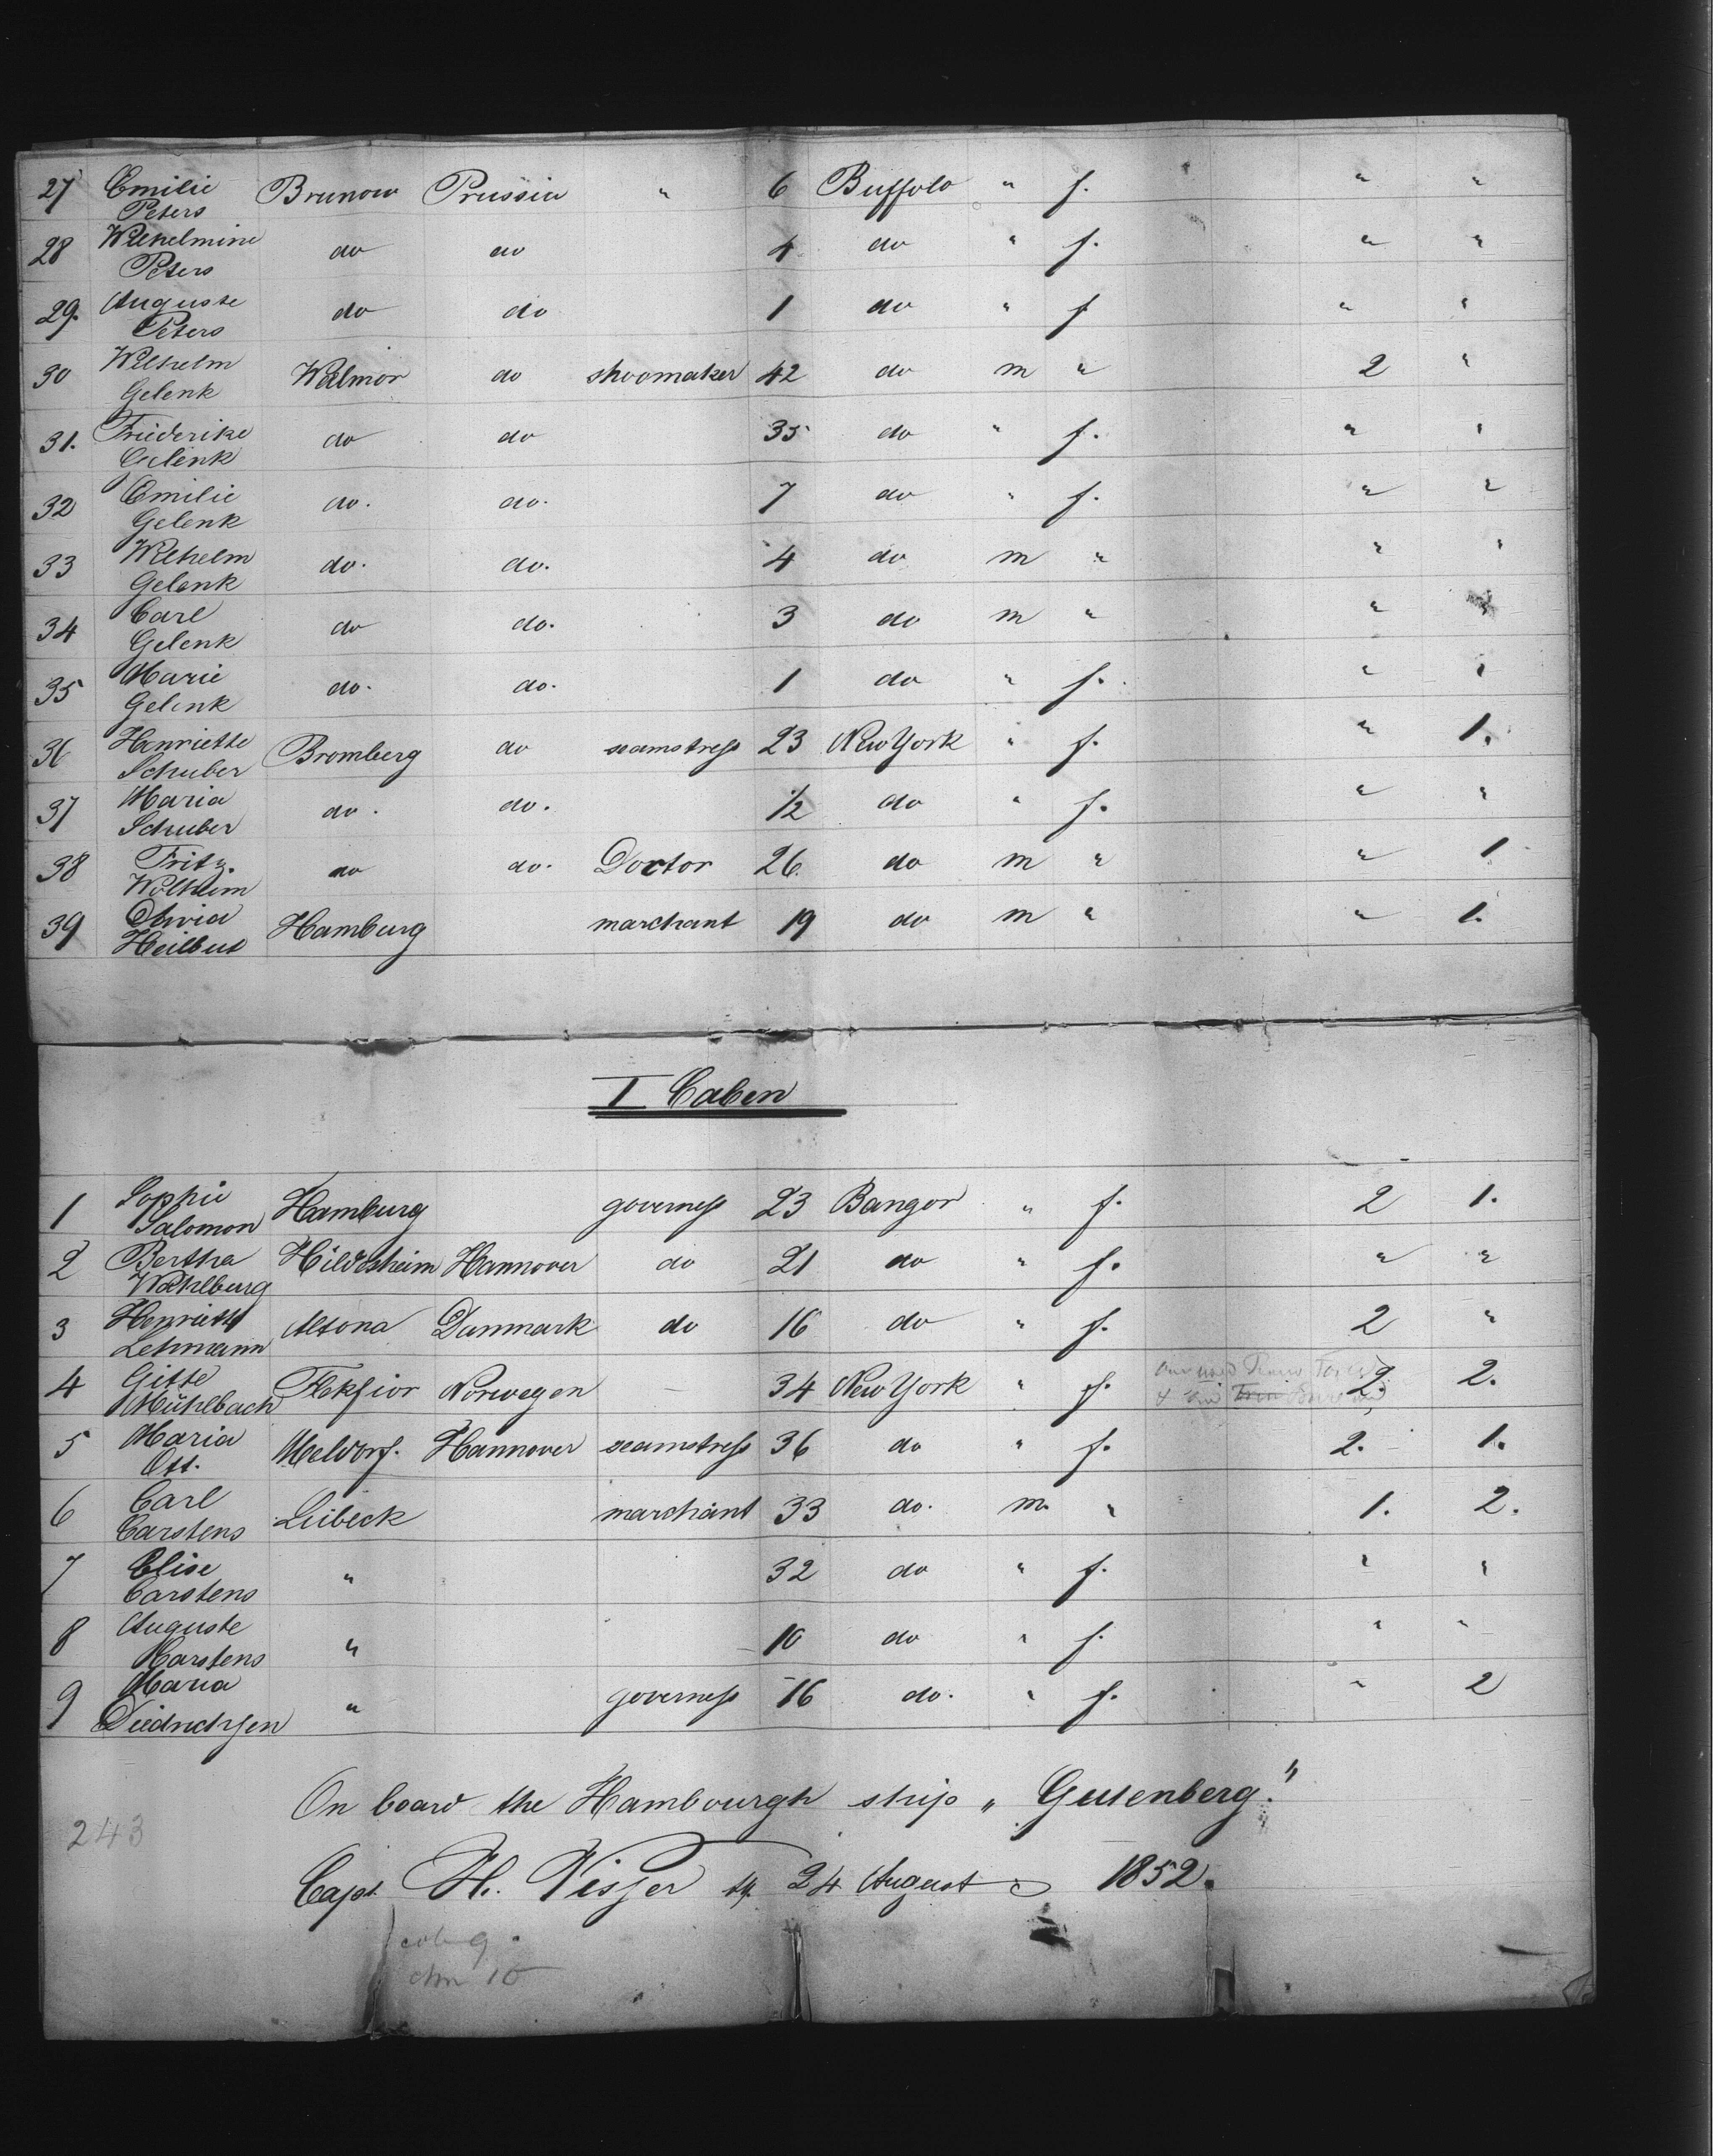 27 Emilie Brunow Prussia " 6 Buffolo " f. " "
Peters
28 Wilhelmine do do 4 do " f. " "
Peters
29. Auguste do do 1 do " f " "
Peters
30 Wilhelm Walmor do shoomaker 42 do m " 2 "
Gelenk
31. Friederike do do 35 do " f. " "
Gelenk
32 Emilie do. do. 7 do " f. " "
Gelenk
33 Wilhelm do. do. 4 do m " " "
Gelenk
34 Carl do do. 3 do m " " "
Gelenk
35 Marie do. do. 1 do " f. " "
Gelenk
36 Henriette Bromberg do seamstress 23 New York " f. " 1.
Schuber
37 Maria do. do. 1/2 do " f. " "
Schuber
38 Fritz do do. Doctor 26. do m " " 1
Wolheim
39 Hamburg marchant 19 do m " " 1.
Heilbut
I Caben
1 Sophie Hamburg governess 23 Bangor " f. 2 1.
Salomon
2 Bertha Hildesheim Hannover do 21 do " f. " "
Wahlburg
3 Henriette Altona Danmark do 16 do " f. 2 "
Lehmann
4 Gitte Flekfior Norwegen - 34 New York " f. 2. 2.
Mühlbach
5 Maria Meldorf. Hannover seamstress 36 do " f. 2. 1.
Ott.
6 Carl Lübeck marchant 33 do. m. " 1. 2.
Carstens
7 Elise " 32 do " f. " "
Carstens
8 Auguste " 10 do " f. " "
Carstens
9 Maria " governess 16 do. " f. " 2
Diedrichsen
On board the Hambourgh ship „Gutenberg."
243
Capt. H. Visser 24 August 1852.